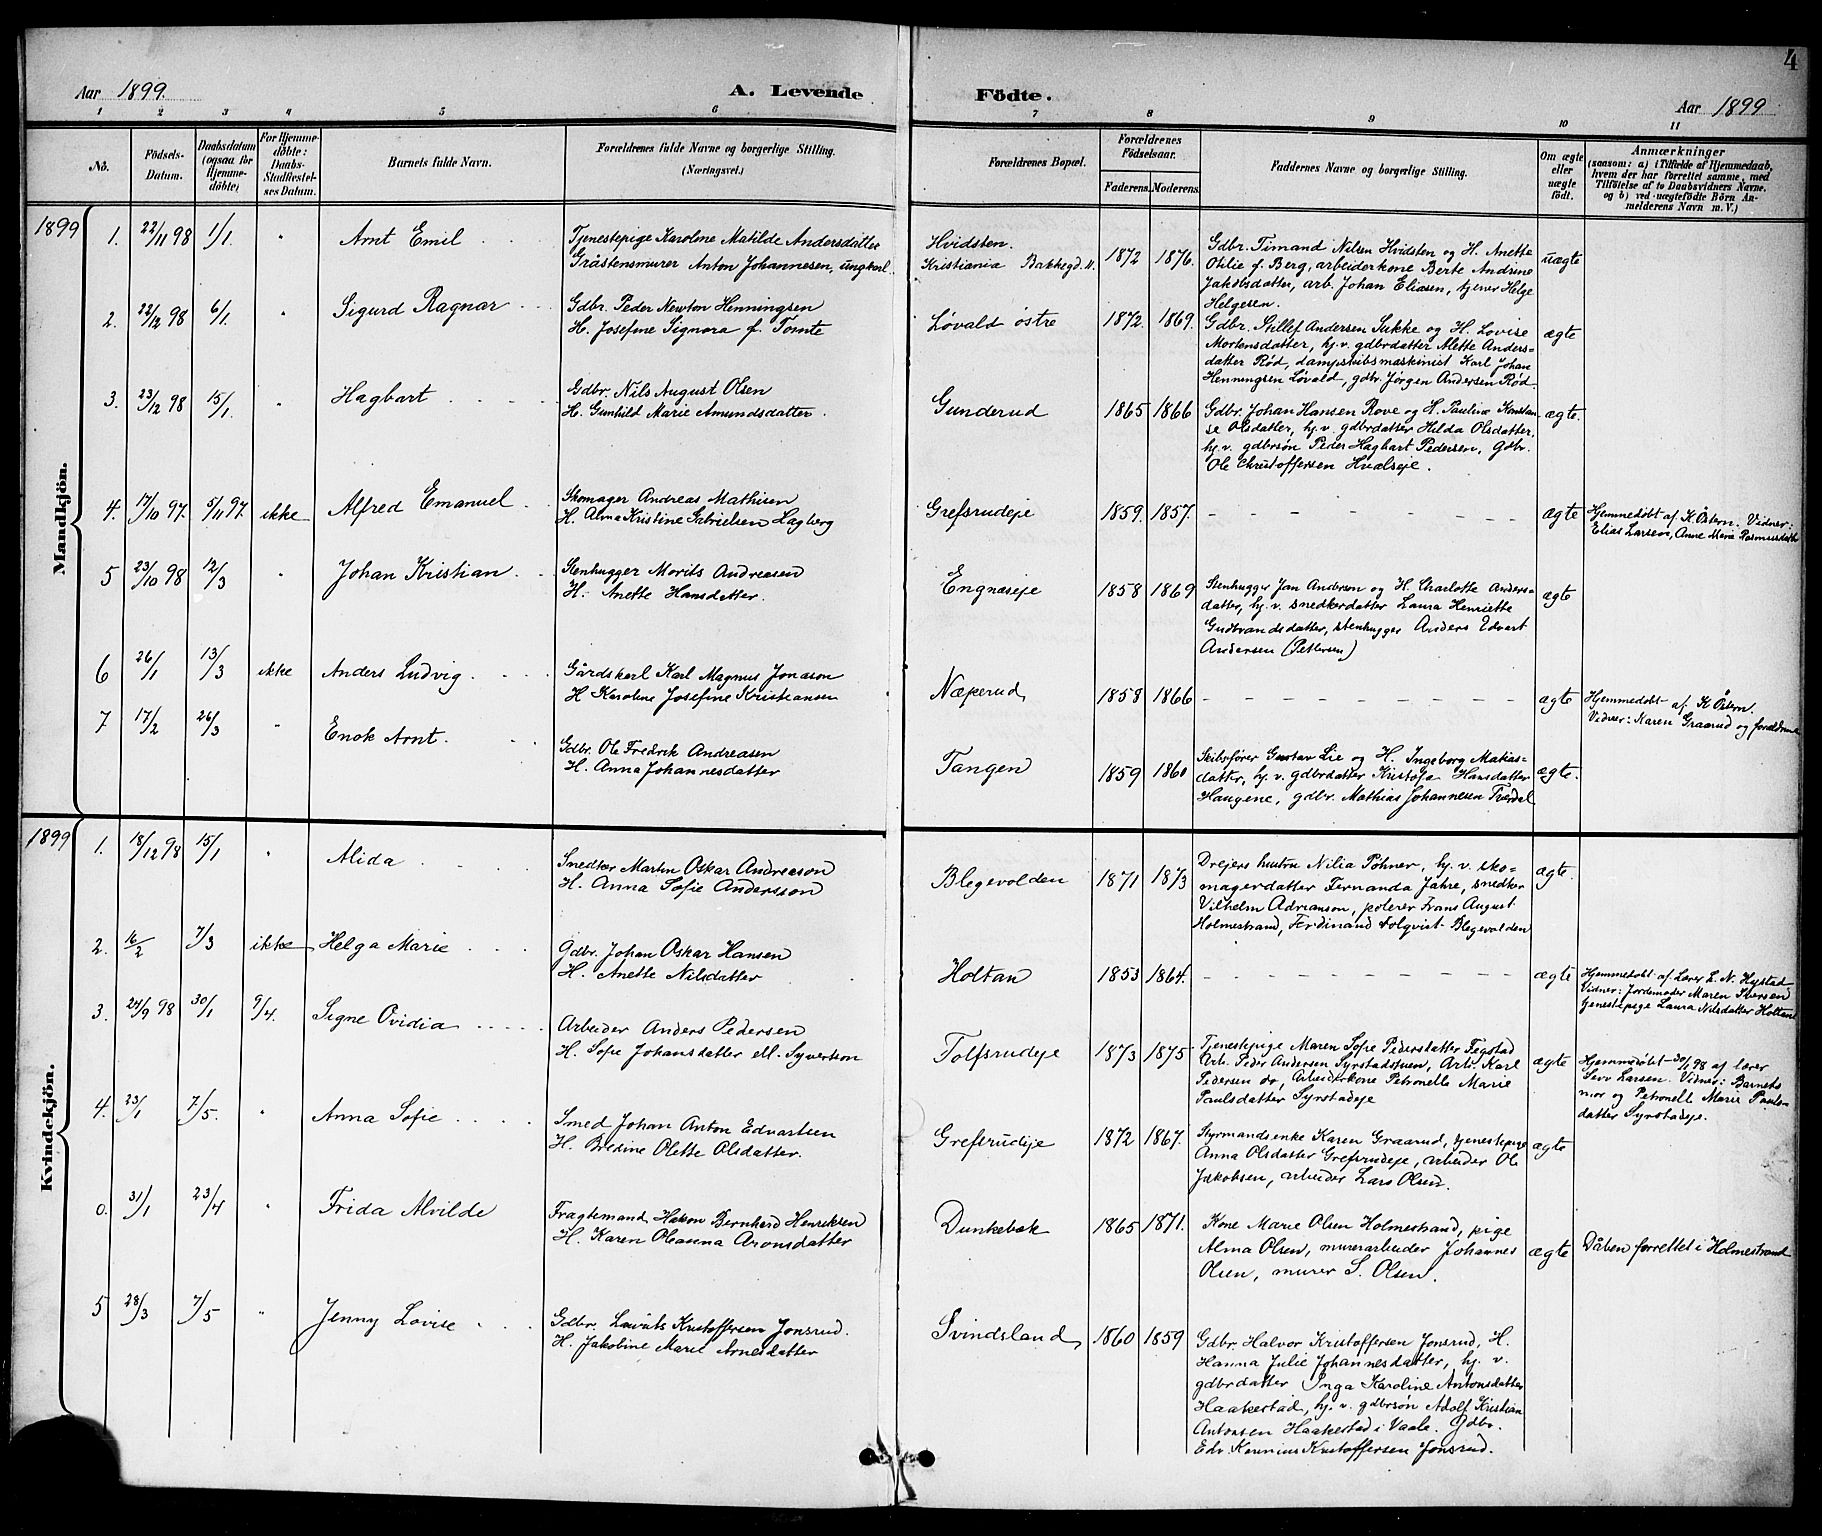 4
Aar 1899.
A. Levende Födte.
Aar 1899
1 2 3 4 5 6 7 8 9 10 11
No.
Födsels-Datum.
Daabsdatum (ogsaa for Hjemme-döbte)
For Hjemme-döbte: Daabs-Stadfæstel-ses Datum.
Barnets fulde Navn.
Forældrenes fulde Navne og borgerlige Stilling.
(Næringsvei.)
Forældrenes Bopæl.
Forældrenes Födselsaar.
Faderens. Moderens.
Faddernes Navne og borgerlige Stilling.
Om ægte eller uægte födt.
Anmærkninger
(saasom: a) i Tilfælde af Hjemmedaab,
hvem der har forrettet samme, med
Tilföielse af to Daabsvidners Navne,
og b) ved uægtefödte Börn An-
melderens Navn m. V.)
Mandkjön.
1899
1. 22/11 98 1/1. " Arnt Emil
Tjenestepige Karoline Matilde Andersdatter
Gråstensmurer Anton Johannesen, ungkarl.
Hvidsten.
Kristiania Bakkegd. 11.
1872 1876.
Gdbr. Timand Nilsen Hvidsten og H. Anette
Otilie f. Berg, arbeiderkone Berte Andrine
Jakobsdatter, arb. Johan Eliasen, tjener Helge
Helgesen.
uægte
2. 22/12 98 6/1. " Sigurd Ragnar
Gdbr. Peder Newton Henningsen
H. Josefine Signora f. Tomte
Løvald østre
1872. 1869.
Gdbr. Stillef Andersen Sukke og H. Lovise
Mortensdatter, hj.v. gdbrdatter Mette Anders-
datter Rød, dampskibsmaskinist Karl Johan
Henningsen Løvald, gdbr. Jørgen Andersen Rød.
ægte
3. 23/12 98 15/1. " Hagbart
Gdbr. Nils August Olsen
H. Gunhild Marie Amundsdatter.
Gunderud
1865 1866
Gdbr. Johan Hansen Rove og H. Pauline Konstan-
se Olsdatter, hj.v. gdbrdatter Hilda Olsdatter,
hj.v. gdbrsøn Peder Hagbart Pedersen, Gdbr.
Ole Christoffersen Hvalseje.
ægte.
4. 17/10 97. 5/11 97. ikke Alfred Emanuel
Skomager Andreas Mathisen
H. Alma Kristine Gabrielsen Lagberg
Grefsrudeje
1859. 1857.
ægte
Hjemmedøbt af K. Østern. Vidner:
Elias Larsen, Anne Maria Rasmusdatter
5 23/10 98 12/3 " Johan Kristian
Stenhugger Morits Andreasen
H. Anette Hansdatter.
Engnæseje
1858 1869
Stenhugger Jan Anderson og H. Charlotte Anders-
datter, hj.v. snedkerdatter Laura Henriette
Gudbrandsdatter, stenhugger Anders Edvart
Andersen (Pettersen)
ægte
6 26/1 13/3 ikke Anders Ludvig
Gårdskarl Karl Magnus Jonason
H Karoline Josefine Kristiansen
Næperud
1858 1866
ægte
Hjemmedøbt af K Østern.
Vidner: Karen Graarud og forældrene
7 17/2 26/3 " Enok Arnt
Gdbr. Ole Fredrik Andreasen
H. Anna Johannesdatter
Tangen
1859 1860
Skibsfører Gustav Lie og H. Ingeborg Matias-
datter, hj.v. gdbrdatter Kristofa Hansdatter
Haugene, gdbr. Mathias Johannesen
ægte.
Kvindekjön.
1899
1. 18/12 98 15/1 " Alida
Snedker Martin Oskar Andreason
H. Anna Sofie Andersson
Blegevolden
1871 1873
Drejers hustru Nilia Pöhner, hj.v. sko-
magerdatter Fernanda Jahre, snedker
Vilhelm Adrianson, polerer Frans August
Holmestrand, Ferdinand Blegevolden
ægte.
2. 16/2 7/3 ikke Helga Marie
Gdbr. Johan Oskar Hansen
H. Anette Nilsdatter
Holtan
1853 1864.
ægte
Hjemmedøbt af Lærer L. N. Hystad
Vidner: Jordemoder Maren Iversen
tjenestepige Laura Nilsdatter Holtan
3. 24/9 98 30/1 9/4. Signe Ovidia
Arbeider Anders Pedersen
H. Sofie Johansdatter ell. Syvertson
Tolfsrudeje
1873 1875
Tjenestepige Maren Sofie Pedersdatter Fegstad
Arb. Peder Andersen Syrstadstuen, Arb. Karl
Pedersen do, Arbeiderkone Petronelle Marie
Paulsdatter Syrstadeje
ægte
Hjemmedøbt 30/1 98 af lærer
Sevr Larsen. Vidner: Barnets
mor og Petronelle Marie Pauls-
datter Syrstadeje.
4. 23/1 7/5. " Anna Sofie
Smed Johan Anton Edvartsen
H. Bredine Olette Olsdatter.
Grefsrudeje
1872 1867.
Styrmandsenke Karen Graarud, tjenestepige
Anna Olsdatter Grefsrudeje, arbeider Ole
Jakobsen, arbeider Lars Olsen.
ægte
0. 31/1 23/4 " Frida Alvilde
Fragtemand Hakon Bernhard Henriksen
H. Karen Oleanna Aronsdatter
Dunkebæk
1865 1871.
Kone Marie Olsen Holmestrand, pige
Alma Olsen, murerarbeider Johannes
Olsen, murer S. Olsen.
ægte
Dåben forrettet i Holmestrand
5 28/3 7/5 " Jenny Lovise
Gdbr. Lauritz Kristoffersen Jonsrud.
H. Jakobine Marie Arnesdatter
Svindsland
1860 1859
Gdbr. Halvor Kristoffersen Jonsrud, H.
Hanna Julie Johannesdatter, hj. v.
gdbrdatter Inga Karoline Antonsdatter
Haakestad, hj. v. gdbrsøn Adolf Kristian
Antonsen Haakestad i Vaale. Gdbr.
Edv. Kristoffersen Jonsrud.